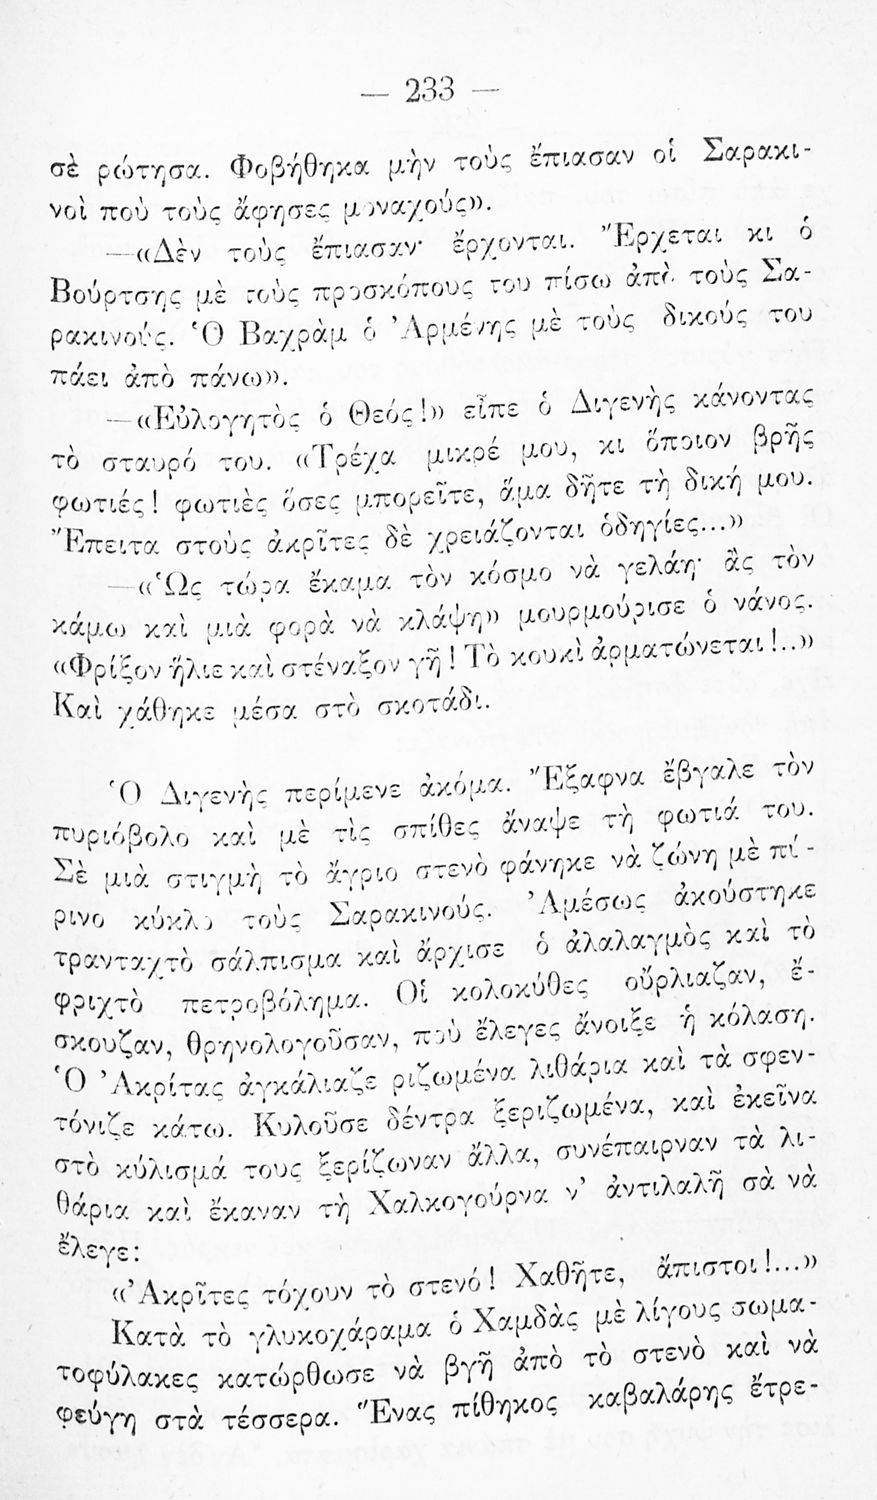 — 233 —
σὲ ρώτησα. Φοβήθηκα μὴν τοὺς ἔπιασαν οἱ Σαρακι-
νοὶ ποὺ τοὺς ἄφησες μοναχούς».
—«Δὲν τοὺς ἔπιασαν· ἔρχονται. Ἔρχεται κι ὁ
Βούρτσης μὲ τοὺς προσκόπους του πίσω ἀπὸ τοὺς Σα-
ρακινούς. Ὁ Βαχρὰμ ὁ Ἀρμένης μὲ τοὺς δικούς του
πάει ἀπὸ πάνω».
—«Εὐλογητὸς ὁ Θεός!» εἶπε ὁ Διγενὴς κάνοντας
τὸ σταυρό του. «Τρέχα μικρέ μου, κι ὅποιον βρῆς
φωτιές! φωτιὲς ὅσες μπορεῖτε, ἅμα δῆτε τὴ δική μου.
Ἔπειτα στοὺς ἀκρῖτες δὲ χρειάζονται ὁδηγίες...»
—«Ὡς τώρα ἔκαμα τὸν κόσμο νὰ γελάη· ἂς τὸν
κάμω καὶ μιὰ φορὰ νὰ κλάψη» μουρμούρισε ὁ νάνος.
«Φρίξον ἥλιε καὶ στέναξον γῆ! Τὸ κουκὶ ἀρματώνεται!..»
Καὶ χάθηκε μέσα στὸ σκοτάδι.
Ὁ Διγενὴς περίμενε ἀκόμα. Ἔξαφνα ἔβγαλε τὸν
πυριόβολο καὶ μὲ τὶς σπίθες ἄναψε τὴ φωτιά του.
Σὲ μιὰ στιγμὴ τὸ ἄγριο στενὸ φάνηκε νὰ ζώνη μὲ πί-
ρινο κύκλο τοὺς Σαρακινούς. Ἀμέσως ἀκούστηκε
τρανταχτὸ σάλπισμα καὶ ἄρχισε ὁ ἀλαλαγμὸς καὶ τὸ
φριχτὸ πετροβόλημα. Οἱ κολοκύθες οὔρλιαζαν, ἔ-
σκουζαν, θρηνολογοῦσαν, ποὺ ἔλεγες ἄνοιξε ἡ κόλαση.
Ὁ Ἀκρίτας ἀγκάλιαζε ριζωμένα λιθάρια καὶ τὰ σφεν-
τόνιζε κάτω. Κυλοῦσε δέντρα ξεριζωμένα, καὶ ἐκεῖνα
στὸ κύλισμά τους ξερίζωναν ἄλλα, συνέπαιρναν τὰ λι-
θάρια καὶ ἔκαναν τὴ Χαλκογούρνα ν’ ἀντιλαλῆ σὰ νὰ
ἔλεγε:
«Ἀκρῖτες τόχουν τὸ στενό! Χαθῆτε, ἄπιστοι!...»
Κατὰ τὸ γλυκοχάραμα ὁ Χαμδὰς μὲ λίγους σωμα-
τοφύλακες κατώρθωσε νὰ βγῆ ἀπὸ τὸ στενὸ καὶ νὰ
φεύγη στὰ τέσσερα. Ἕνας πίθηκος καβαλάρης ἔτρε-